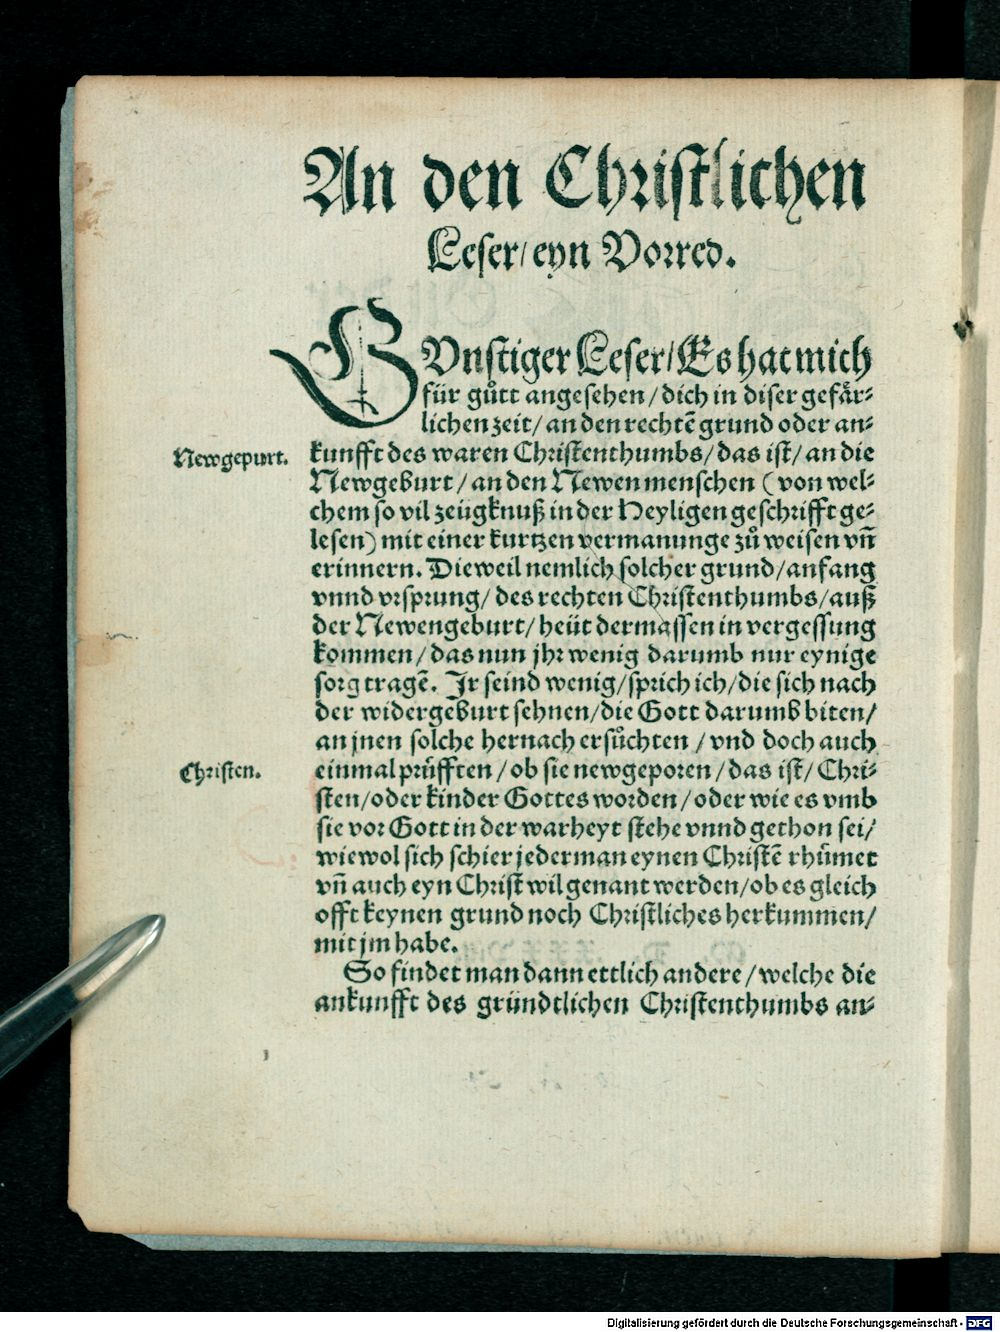 An den Christlichen
Leser/ eyn Vorred.
GVnstiger Leser/ Es hat mich
für gůtt angesehen/ dich in diser gefär-
lichen zeit/ an den rechtē grund oder an-
Newgepurt.
kunfft des waren Christenthumbs/ das ist/ an die
Newgeburt/ an den Newen menschen (von wel-
chem so vil zeügknuß in der Heyligen geschrifft ge-
lesen) mit einer kurtzen vermanunge zů weisen vñ
erinnern. Dieweil nemlich solcher grund/ anfang
vnnd vrsprung/ des rechten Christenthumbs/ auß
der Newengeburt/ heüt dermassen in vergessung
kommen/ das nun jhr wenig darumb nur eynige
sorg tragē. Ir seind wenig/ sprich ich/ die sich nach
der widergeburt sehnen/ die Gott darumb biten/
an jnen solche hernach ersůchten/ vnd doch auch
Christen.
einmal prüfften/ ob sie newgeporen/ das ist/ Chri-
sten/ oder kinder Gottes worden/ oder wie es vmb
sie vor Gott in der warheyt stehe vnnd gethon sei/
wiewol sich schier jederman eynen Christē rhümet
vñ auch eyn Christ wil genant werden/ ob es gleich
offt keynen grund noch Christliches herkummen/
mit jm habe.
So findet man dann ettlich andere/ welche die
ankunfft des gründtlichen Christenthumbs an-
Digitalisierung gefördert durch die Deutsche Forschungsgemeinschaft - DFG